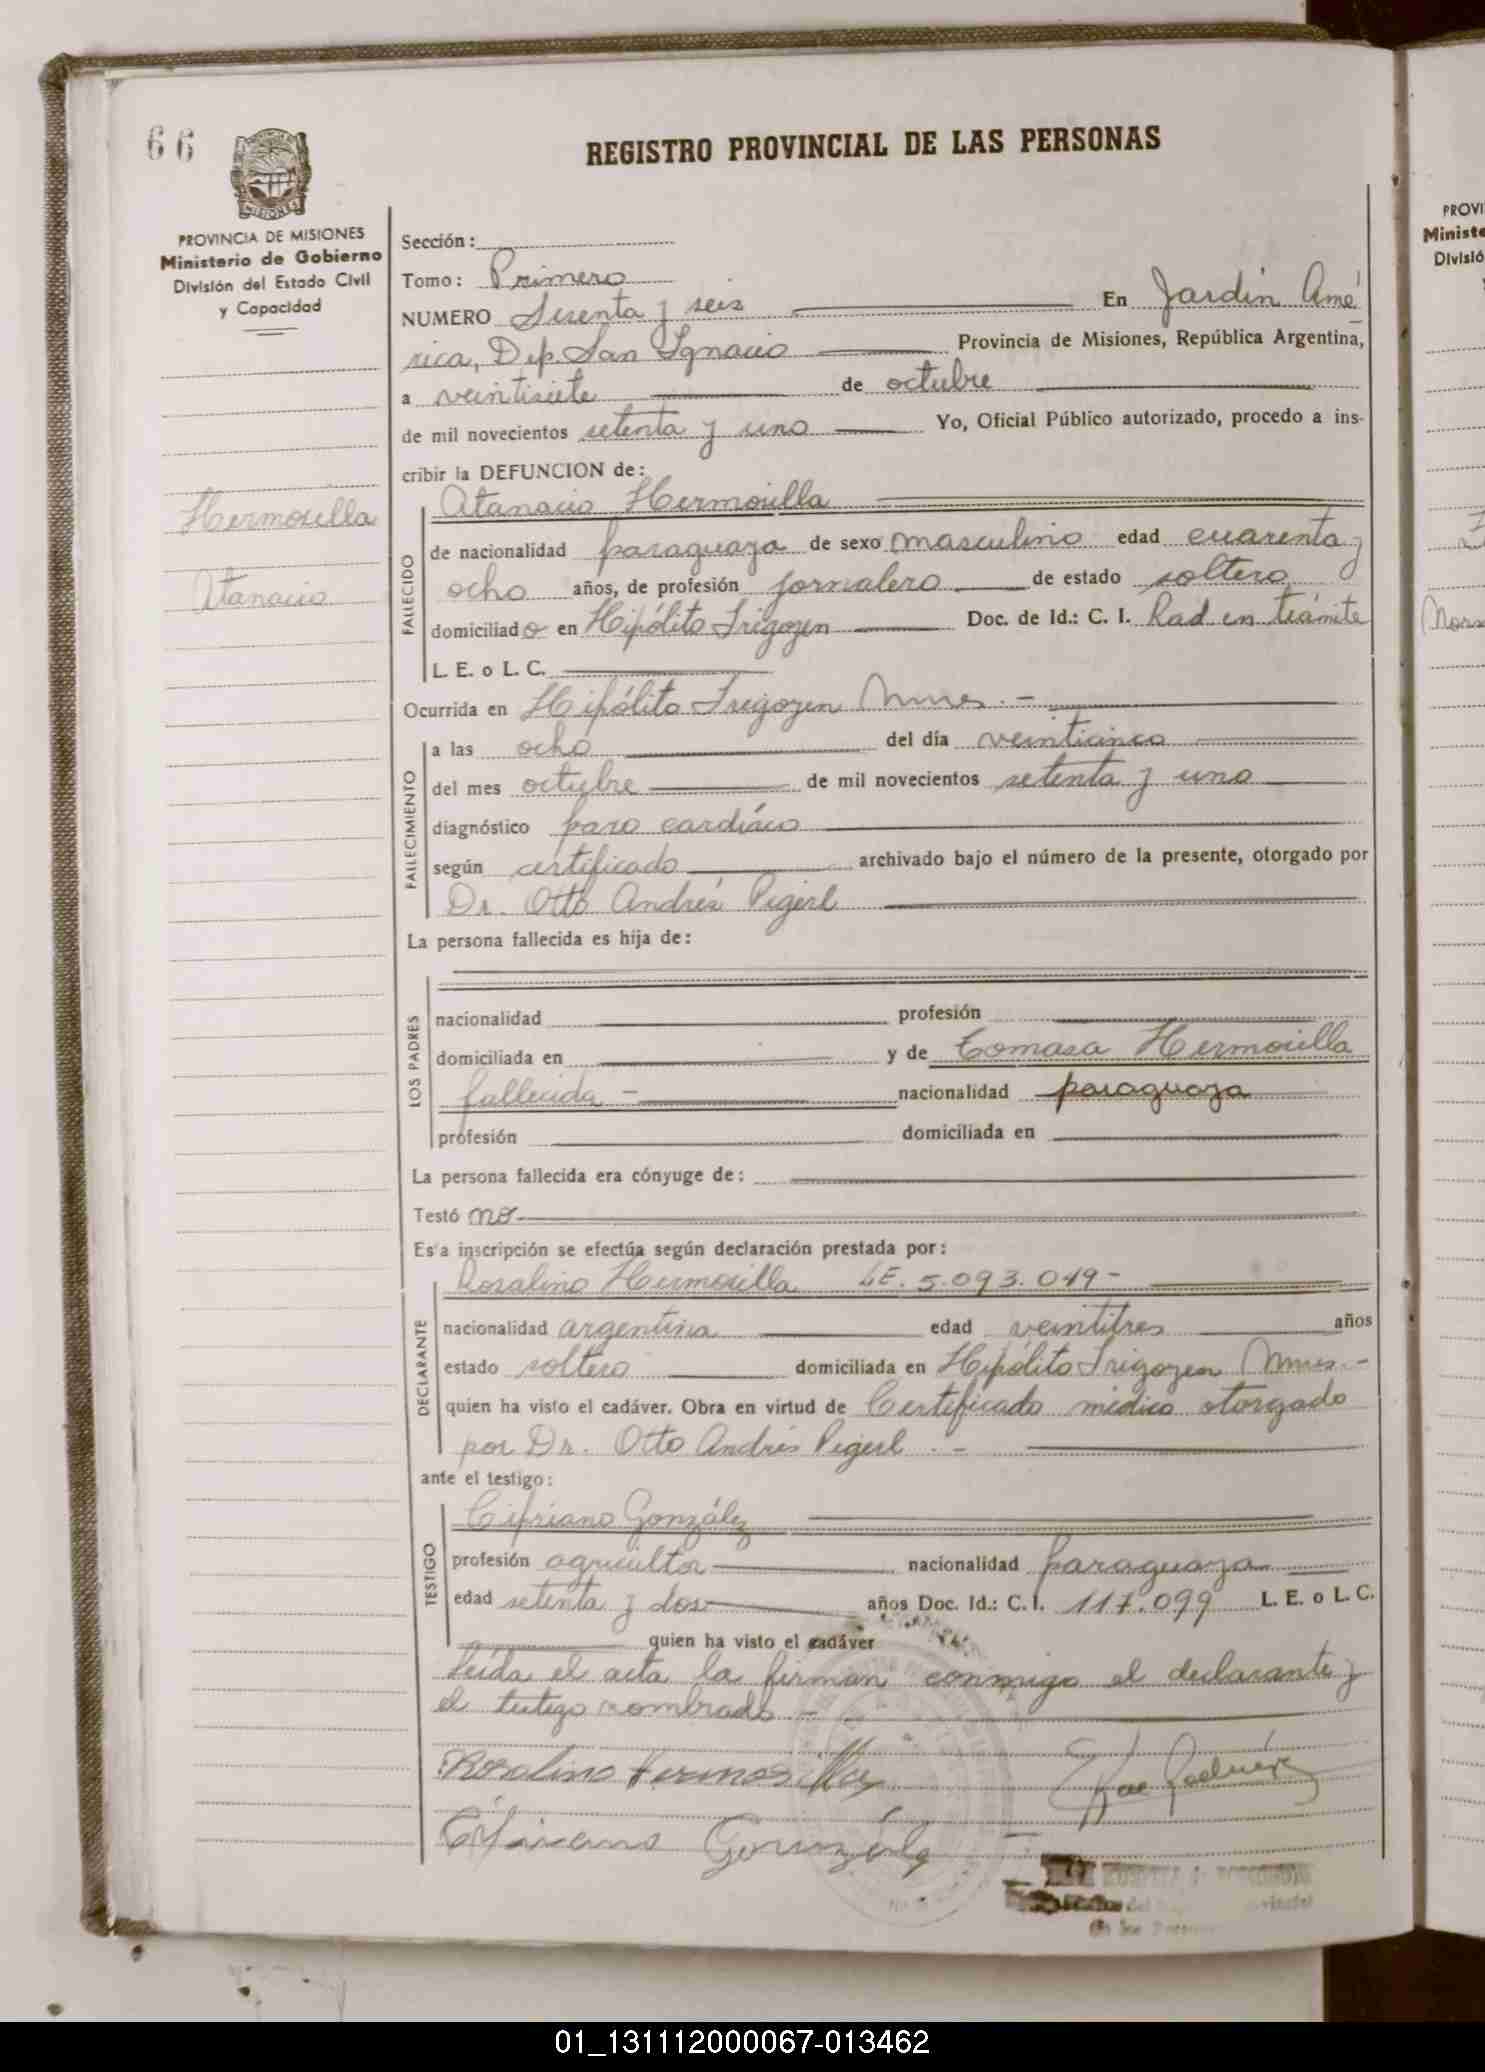 66
REGISTRO PROVINCIAL DE LAS PERSONAS
MISIONES
PROVINCIA DE MISIONES
Ministerio de Gobierno
División del Estado Civil
y Capacidad
Hermosilla
Atanacio
Sección:
Tomo: Primero
NUMERO Sesenta y seis En Jardín Amé
rica, Dep. San Ignacio Provincia de Misiones, República Argentina,
a veintisiete de octubre
de mil novecientos setenta y uno Yo, Oficial Público autorizado, procedo a ins-
cribir la DEFUNCION de:
Atanacio Hermosilla
FALLECIDO
de nacionalidad paraguaya de sexo masculino edad cuarenta y
ocho años, de profesión jornalero de estado soltero
domiciliado en Hipólito Irigoyen Doc. de Id.: C. I. Rad. en trámite
L. E. o L. C.
Ocurrida en Hipólito Irigoyen Mnes. -
FALLECIMIENTO
a las ocho del día veinticinco
del mes octubre de mil novecientos setenta y uno
diagnóstico paro cardíaco
según certificado archivado bajo el número de la presente, otorgado por
Dr. Otto Andrés Pigerl
La persona fallecida es hija de:
LOS PADRES
nacionalidad profesión
domiciliada en y de Tomasa Hermosilla
fallecida - nacionalidad paraguaya
profesión domiciliada en
La persona fallecida era cónyuge de:
Testó no
Es'a inscripción se efectúa según declaración prestada por:
Rosalino Hermosilla LE. 5.093.049-
DECLARANTE
nacionalidad argentina edad veintitres años
estado soltero domiciliada en Hipólito Irigoyen Mnes.-
quien ha visto el cadáver. Obra en virtud de Certificado médico otorgado
por Dr. Otto Andrés Pigerl . -
ante el testigo:
Cipriano González
TESTIGO
profesión agricultor nacionalidad paraguaya
edad setenta y dos años Doc. Id.: C. I. 117.099 L. E. o L. C.
quien ha visto el cadáver
Leída el acta la firman conmigo el declarante y
el testigo nombrado -
Rosalino Hermosilla
Cipriano González
PROVI
Ministe
Divisió
01_131112000067-013462